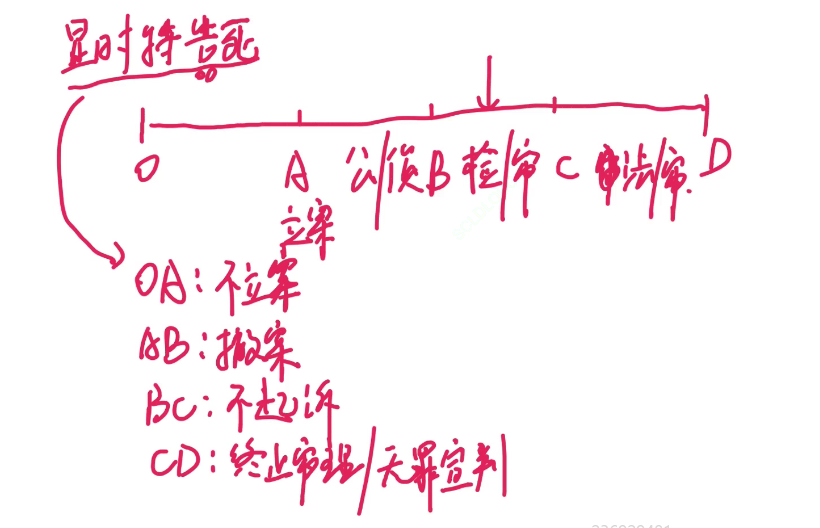 显时特告死
O A 公/侦 B 检/审 C 法/审. D
立案
OA：不立案
AB：撤案
BC：不起诉
CD：终止审理/无罪宣判